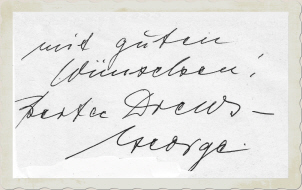 mit guten
Wünschen!
Berta Drews-
George.